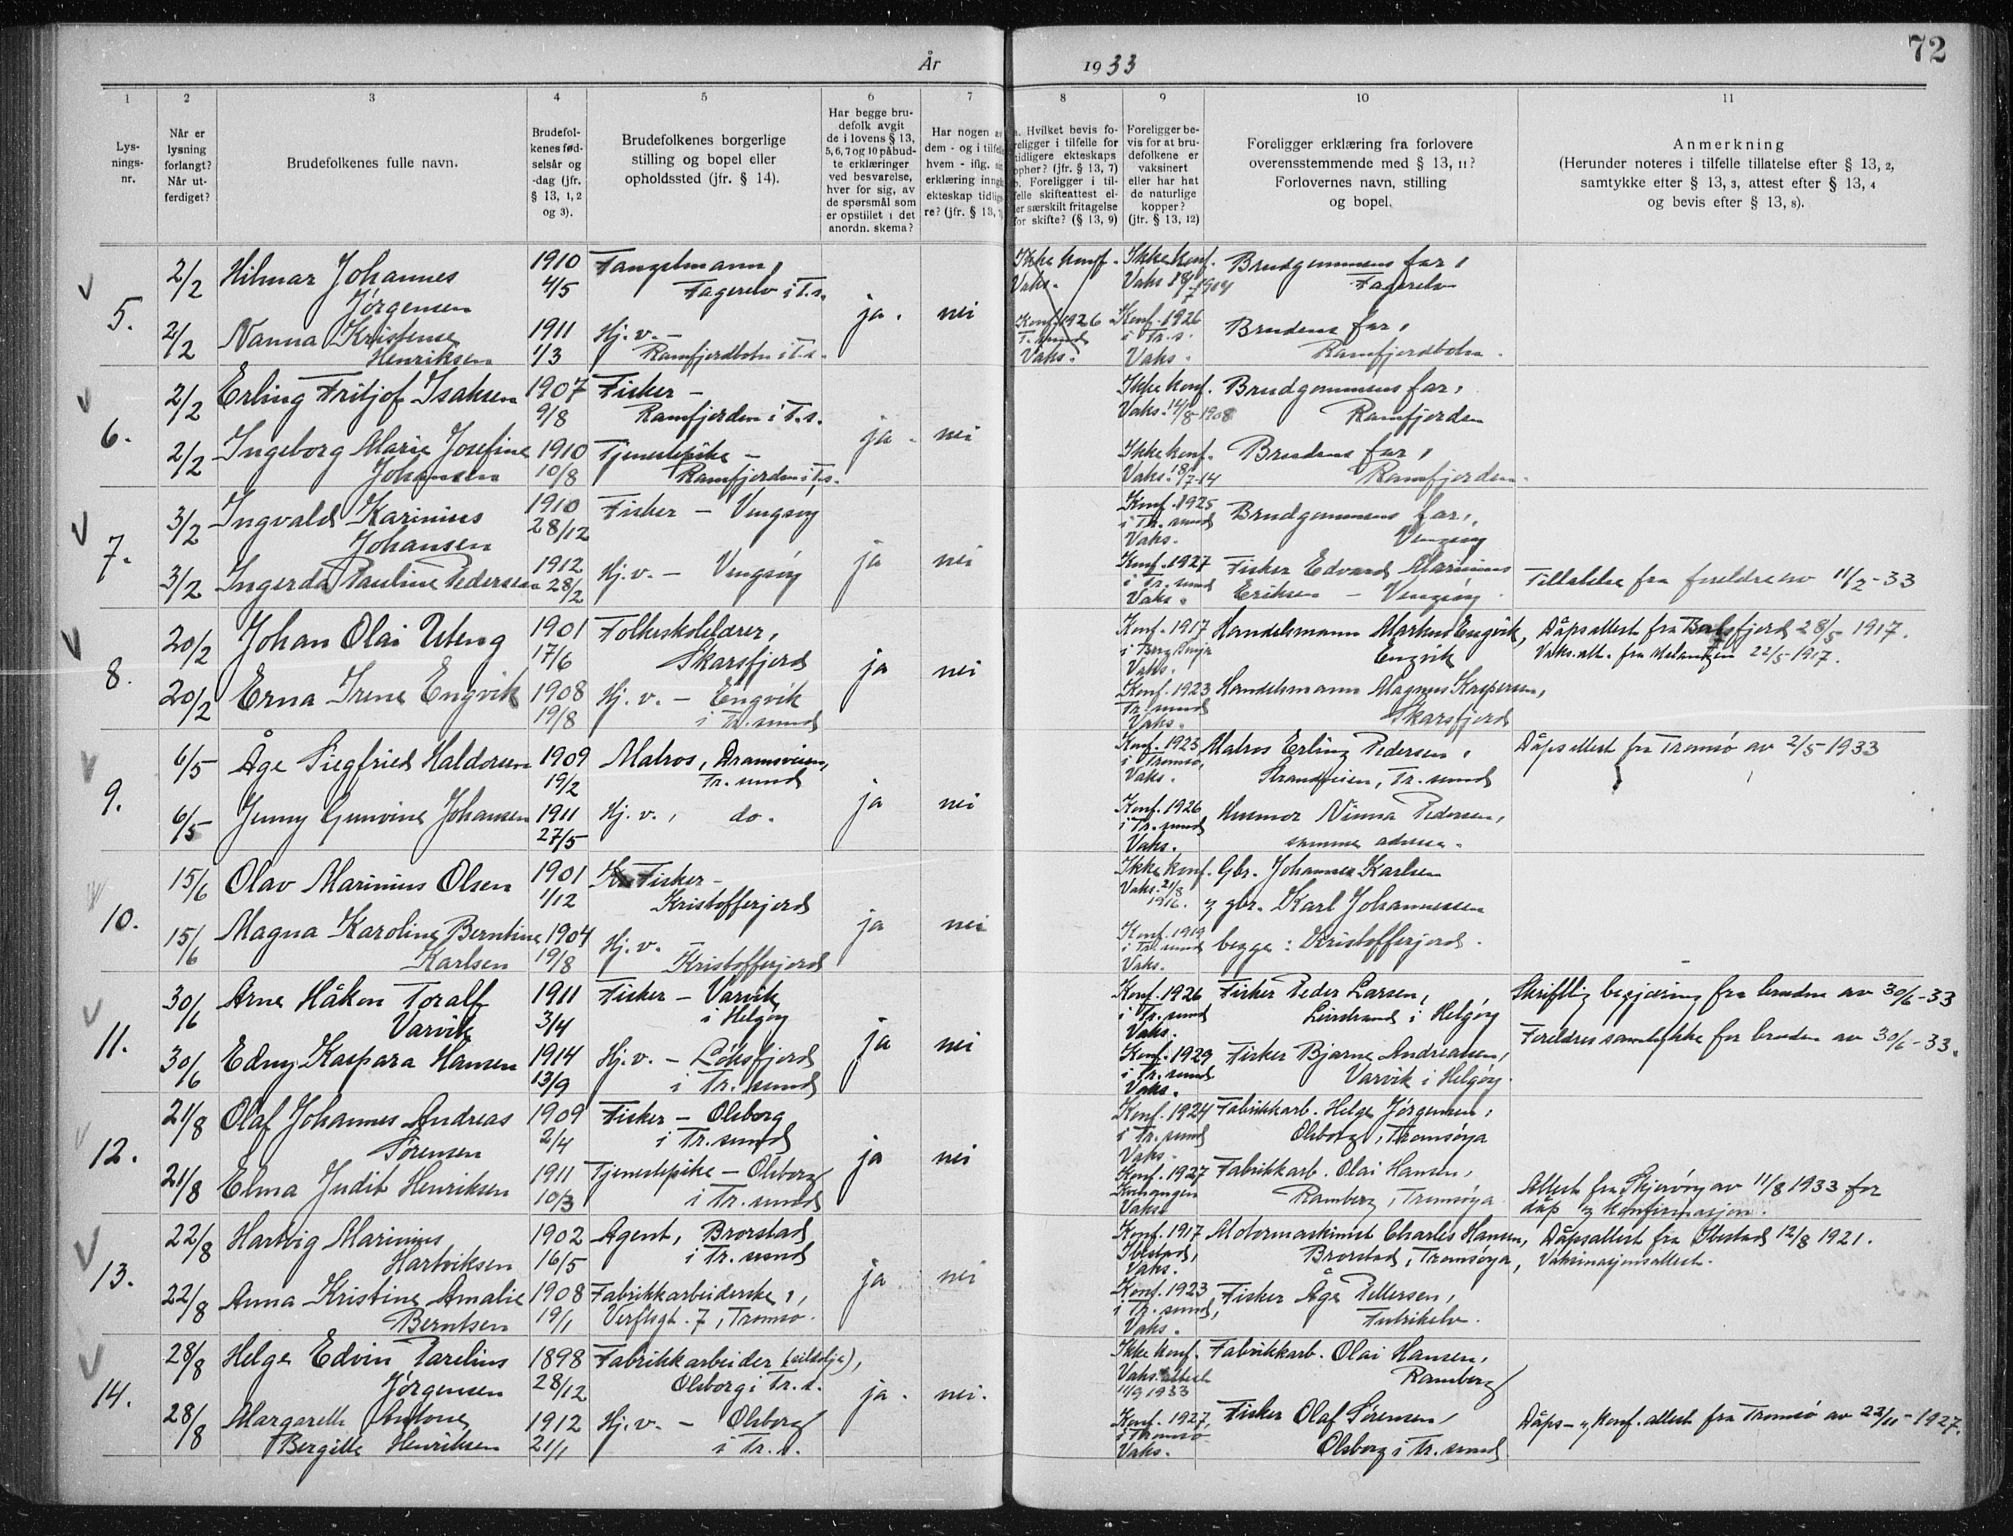 72
År 1933
1 2 3 4 5 6 7 8 9 10 11
Lys-
nings-
nr.
Når er
lysning
forlangt?
Når ut-
ferdiget?
Brudefolkenes fulle navn.
Brudefol-
kenes fød-
selsår og
-dag (jfr.
§ 13, 1, 2
og 3).
Brudefolkenes borgerlige
stilling og bopel eller
opholdssted (jfr. § 14).
Har begge bru-
defolk avgit
de i lovens § 13,
5, 6, 7 og 10 påbud-
te erklæringer
ved besvarelse,
hver for sig, av
de spørsmål som
er opstillet i det
anordn. skema?
Har nogen a
dem - og i tilfel
hvem - iflg.
erklæring inng
ekteskap tidlig
re? (jfr. § 13,
a. Hvilket bevis fo-
religger i tilfelle for
tidligere ekteskaps
opher? (jfr. § 13, 7)
b. Foreligger i til-
felle skifteattest el-
er særskilt fritagelse
for skifte? (§ 13, 9)
Foreligger be-
vis for at bru-
defolkene er
vaksinert
eller har hat
de naturlige
kopper?
(jfr. § 13, 12)
Foreligger erklæring fra forlovere
overensstemmende med § 13, 11?
Forlovernes navn, stilling
og bopel.
Anmerkning
(Herunder noteres i tilfelle tillatelse efter § 13, 2,
samtykke efter § 13, 3, attest efter § 13, 4
og bevis efter § 13, 8).
5.
2/2 Hilmar Johannes 1910 Fangstmann, Ikke konf. Ikke konf. Brudgommens far,
Jørgensen 4/5 Fagerelv i T.s. Vaks. Vaks. Fagerelv
ja. nei
2/2 Nanna Kristense 1911 Hj. v. - Konf. 1926 Konf. 1926 Brudens far,
Henriksen 1/3 Ramfjordbotn i T.s. T. sund i Tr. s. Ramfjordbotn.
Vaks. Vaks.
6.
2/2 Erling Fritjof Isaksen 1907 Fisker - Ikke konf. Brudgommens far,
9/8 Ramfjorden i T.s. Vaks. 14/8-1908 Ramfjorden
ja. nei
2/2 Ingeborg Marie Josefine 1910 Tjenestepike - Ikke konf. Brudens far,
Johansen 10/8 Ramfjorden i T.s. Vaks. 18/7-14 Ramfjorden.
7.
3/2 Ingvald Karinius 1910 Fisker - Vengsøy Konf. 1925 Brudgommens far,
Johansen 28/12 i Tr. sund Vengsøy
Vaks.
ja nei
3/2 Ingerda Pauline Pedersen 1912 Hj. v. - Vengsøy Konf. 1927 Fisker Edvard Marinius
28/2 i Tr. sund Eriksen - Vengsøy. Tillatelse fra foreldre av 11/2-33
Vaks.
8.
20/2 Johan Olai Uteng 1901 Folkeskolelærer, Konf. 1917 Handelsmann Markus Engvik, Dåpsattest fra Balsfjord 28/5 1917.
17/6 Skarsfjord i Berg Senja Engvik Vaks. att. fra Malangen 22/5-1917.
Vaks.
ja nei
20/2 Erna Irene Engvik 1908 Hj. v. - Engvik Konf. 1923 Handelsmann Magnus Kaspersen,
19/8 i Tr. sund Tr. sund Skarsfjord
Vaks.
9.
6/5 Åge Siegfried Haldorsen 1909 Matros, Dramsveien, Konf. 1923 Matros Erling Pedersen, Dåpsattest fra Tromsø av 2/5-1933
19/2 Tr. sund i Tromsø, Strandveien, Tr. sund
Vaks.
ja nei
6/5 Jenny Gunvine Johansen 1911 Hj. v., do. Konf. 1926 Husmor Ninna Pedersen,
27/5 i Tr. sund samme adresse.
Vaks.
10.
15/6 Olav Marinius Olsen 1901 Fisker - Ikke konf. Gbr. Johannes Karlsen
1/12 Kristofferjord Vaks. 21/8 1916. og gbr. Karl Johannessen
ja nei
15/6 Magna Karoline Berntine 1904 Hj. v. Konf. 1919 begge: Kristofferjord.
Karlsen 19/8 Kristofferjord i Tr. sund
Vaks.
11.
30/6 Arne Håkon Toralf 1911 Fisker - Varvik Konf. 1926 Fisker Peder Larsen, Skriftlig begjæring fra bruden av 30/6-33
Varvik 3/4 i Helgøy i Tr. sund Leirstrand i Helgøy
Vaks.
ja nei
30/6 Edny Kaspara Hansen 1914 Hj. v. - Løksfjord Konf. 1929 Fisker Bjarne Andreasen, Foreldres samtykke for bruden av 30/6-33.
13/9 i Tr. sund i Tr. sund Varvik i Helgøy.
Vaks.
12.
21/8 Olaf Johannes Andreas 1909 Fisker - Olsborg Konf. 1924 Fabrikkarb. Helge Jørgensen,
Sørensen 2/4 i Tr. sund i Tr. sund Olsborg, Tromsøya
Vaks.
ja nei
21/8 Elma Judit Henriksen 1911 Tjenestepike - Olsborg Konf. 1927 Fabrikkarb. Olai Hansen,
10/3 i Tr. sund Ramberg, Tromsøya Attest fra Skjervøy av 11/8 1933 for
Vaks. dåp og konfirmasjon.
13.
22/8 Hartvig Marinius 1902 Agent, Brorstad Konf. 1917 Motormaskinist Charles Hansen, Dåpsattest fra Ibestad 12/8 1921.
Hartviksen 16/5 i Tr. sund Ibestad, Brorstad, Tromsøya, Vaksinasjonsattest.
Vaks.
ja nei
22/8 Anna Kristine Amalie 1908 Fabrikkarbeiderske, Konf. 1923 Fisker Åge Pettersen,
Berntsen 19/1 Verftsgt. 7, Tromsø. i Tr. sund,
Vaks.
14.
28/8 Helge Edvin Parelius 1898 Fabrikkarbeider (sildolje), Ikke konf. Fabrikkarb. Olai Hansen,
Jørgensen 28/12 Olsborg i Tr. s. Vaks. attest Ramberg
11/9 1933
ja. nei.
28/8 Margareth Antone 1912 Hj. v. - Olsborg Konf. 1927, Fisker Olaf Sørensen, Dåps- og konf. attest fra Tromsø av 22/11-1927.
Bergitte Henriksen 21/1 i Tr. s. i Tromsø Olsborg i Tr. sund.
Vaks.